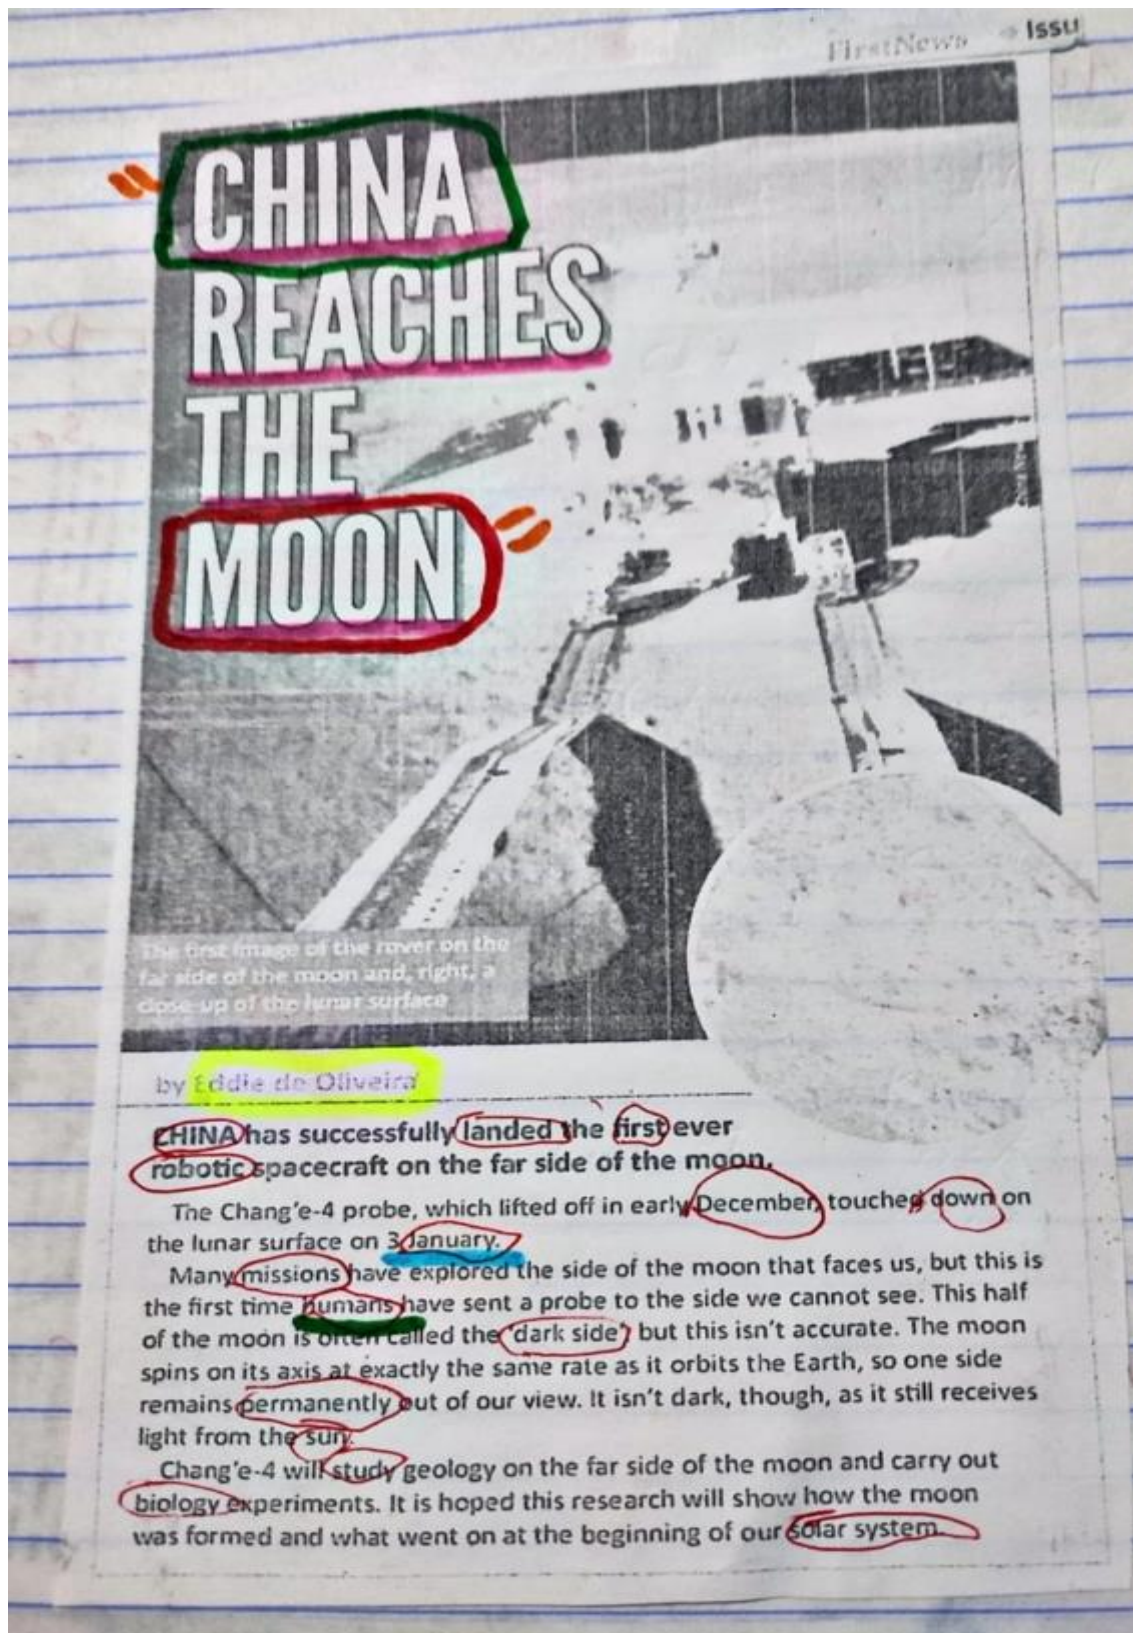 FirstNews Issu
CHINA
REACHES
THE
MOON
The first image of the rover on the
far side of the moon and, right, a
close-up of the lunar surface
by Eddie de Oliveira
CHINA has successfully landed the first ever
robotic spacecraft on the far side of the moon.
The Chang'e-4 probe, which lifted off in early December, touched down on
the lunar surface on 3 January.
Many missions have explored the side of the moon that faces us, but this is
the first time humans have sent a probe to the side we cannot see. This half
of the moon is often called the 'dark side', but this isn't accurate. The moon
spins on its axis at exactly the same rate as it orbits the Earth, so one side
remains permanently out of our view. It isn't dark, though, as it still receives
light from the sun.
Chang'e-4 will study geology on the far side of the moon and carry out
biology experiments. It is hoped this research will show how the moon
was formed and what went on at the beginning of our solar system.